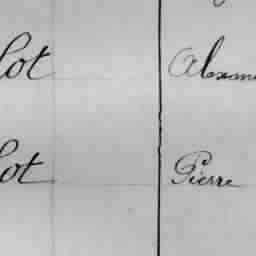 lot Alexan
lot Pierre